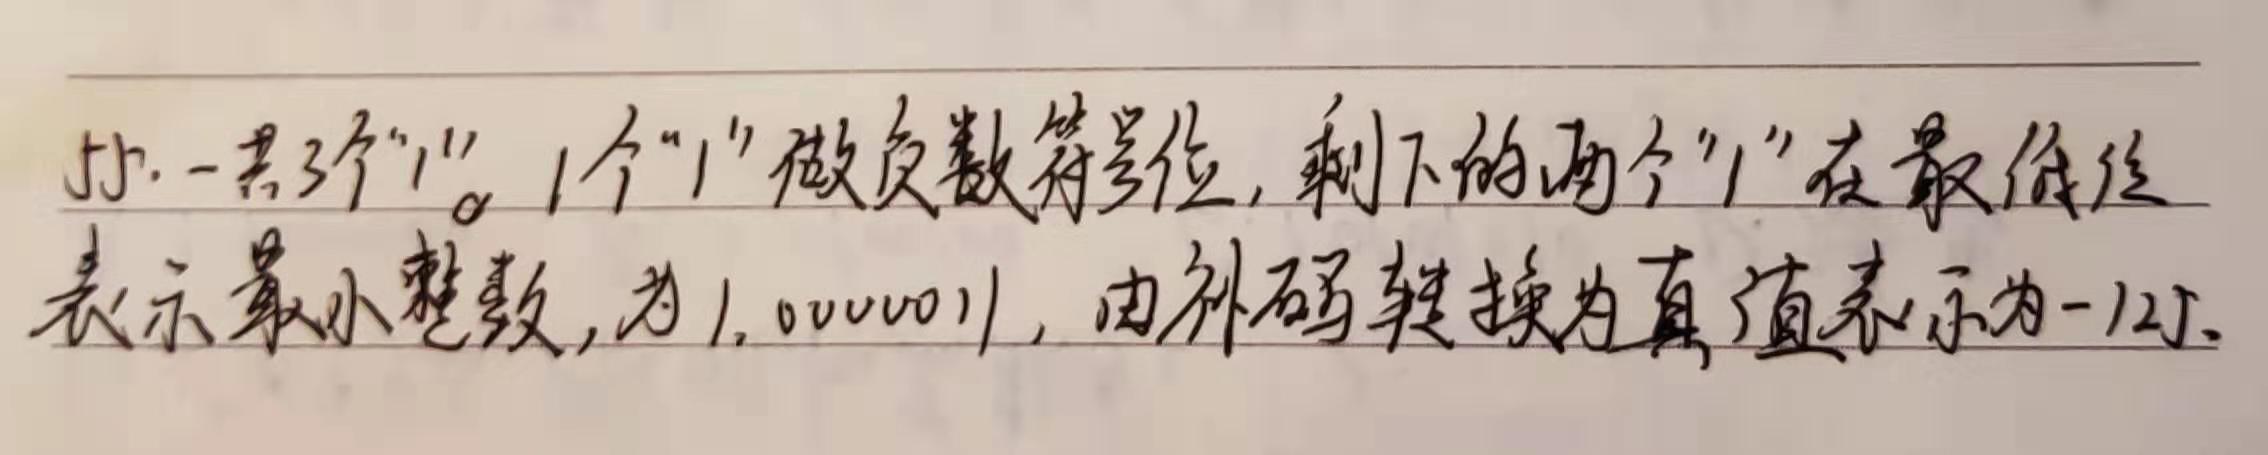 55.一共3个"1"。1个"1"做负数符号位,剩下的两个"1"在最低位
表示最小整数,为1,0000011,由补码转换为真值表示为-125.